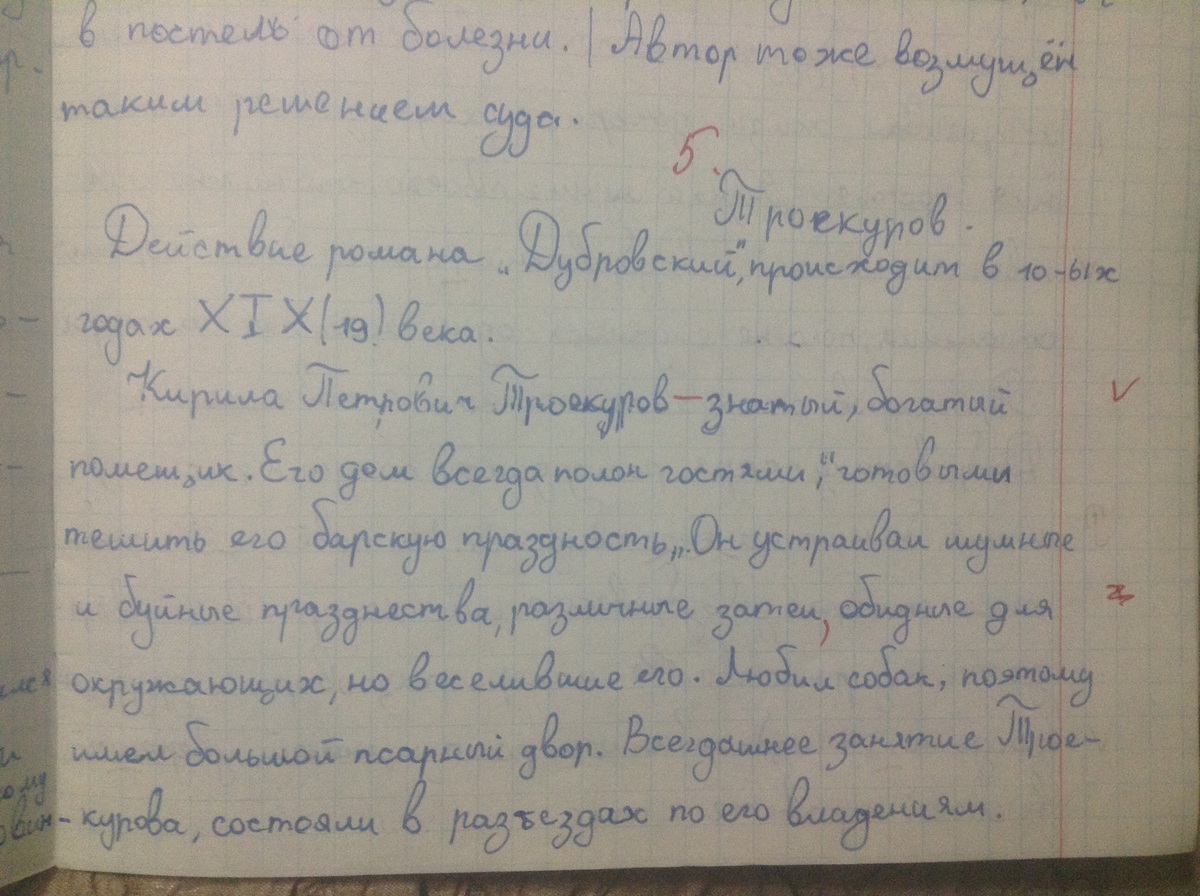 в постель от болезни. | Автор тоже возмущён
таким решением суда.
5.
Троекуров.
Действие романа „Дубровский", происходит в 10-ых
годах XIX (19) века.
Кирила Петрович Троекуров — знатый, богатий
помещик. Его дом всегда полон гостями, "готовыми
тешить его барскую праздность„. Он устраивал шумные
и буйные празднества, различные затеи, обидные для
окружающих, но веселившие его. Любил собак, поэтому
имел большой псарный двор. Всегдашнее занятие Трое-
курова, состояли в разъездах по его владениям.